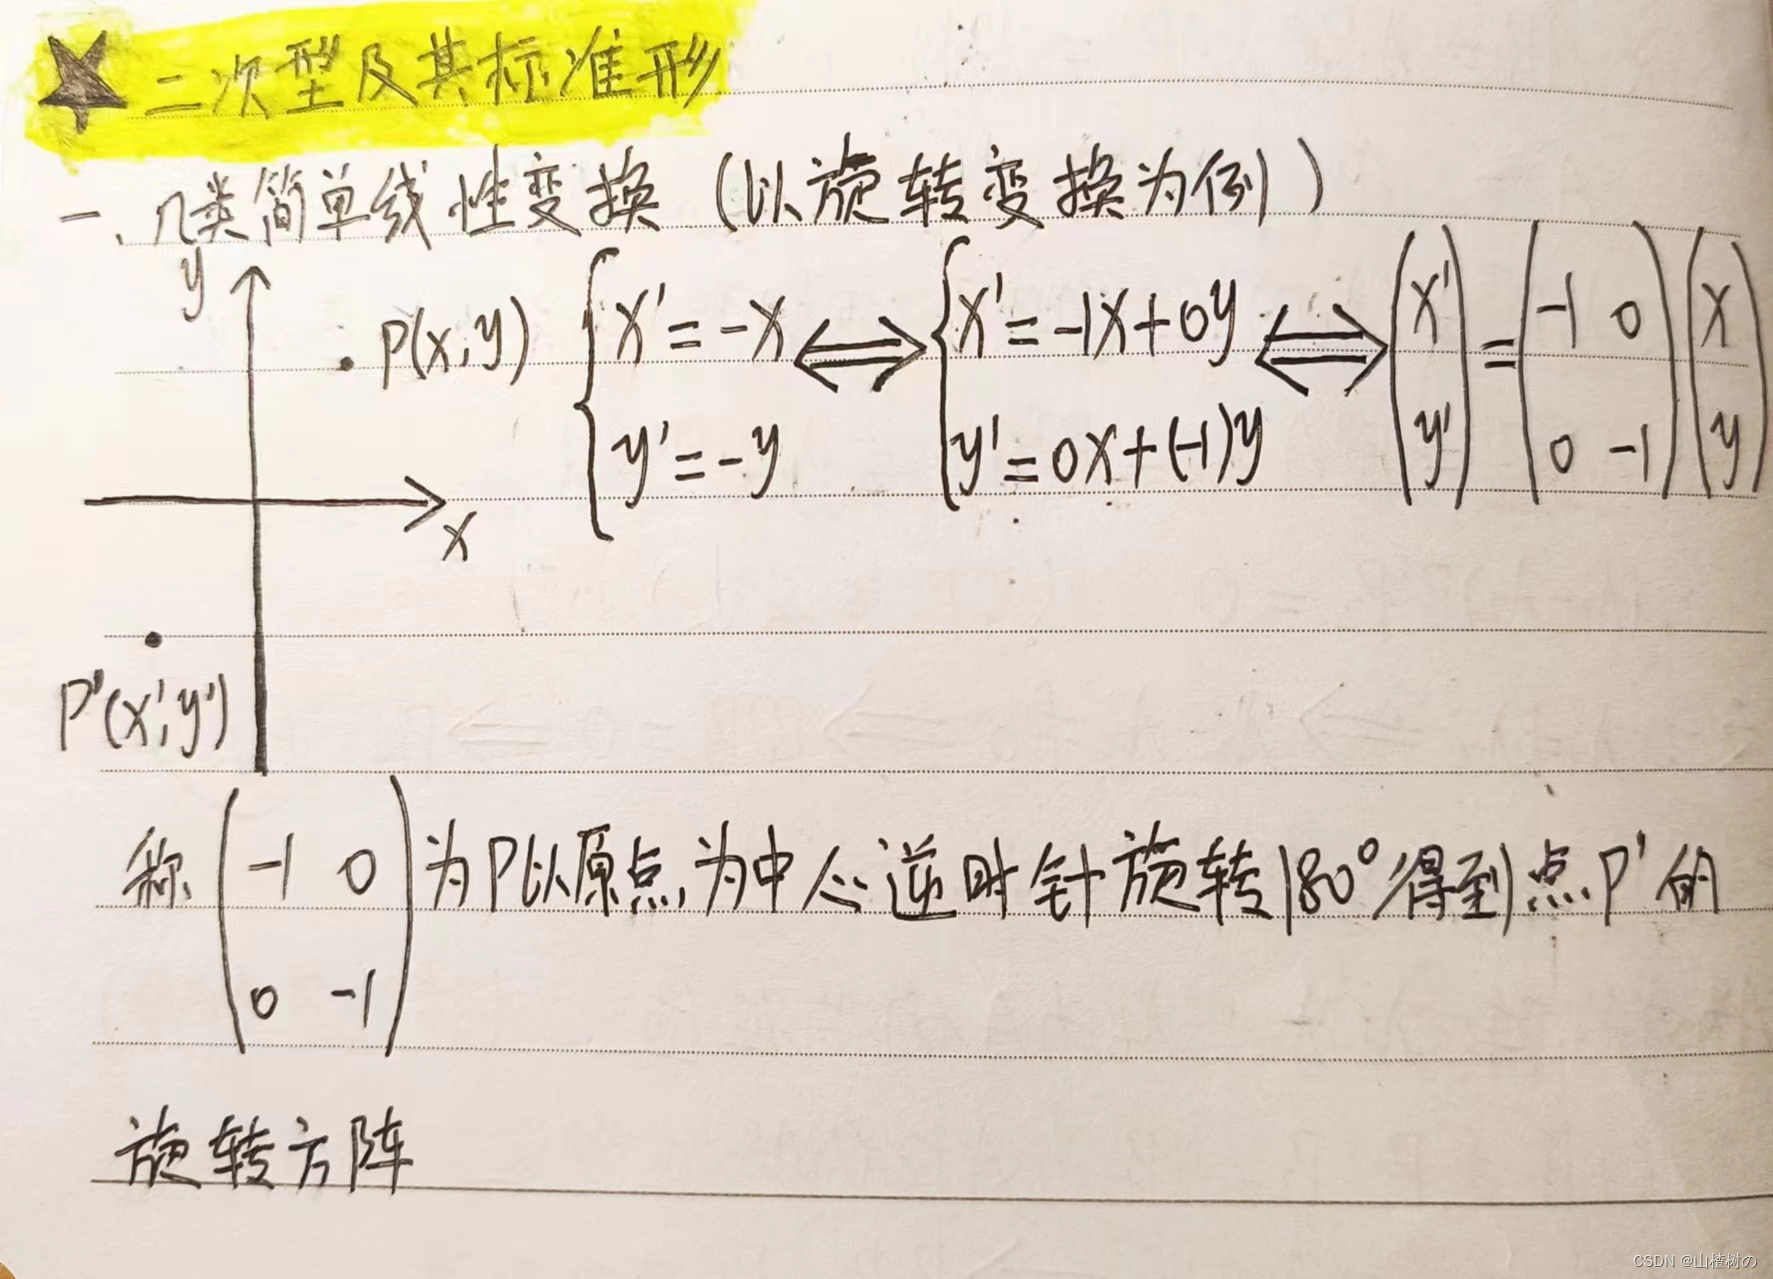 ★ 二次型及其标准形
一、几类简单线性变换（以旋转变换为例）
y
P(x,y)
{ x'=-x ⟺ { x'=-1x+0y ⟺ (x') = (-1 0) (x)
y'=-y y'=0x+(-1)y (y') (0 -1) (y)
x
P'(x',y')
称 (-1 0) 为P以原点为中心逆时针旋转180°得到点P'的
(0 -1)
旋转方阵
CSDN @山楂树の